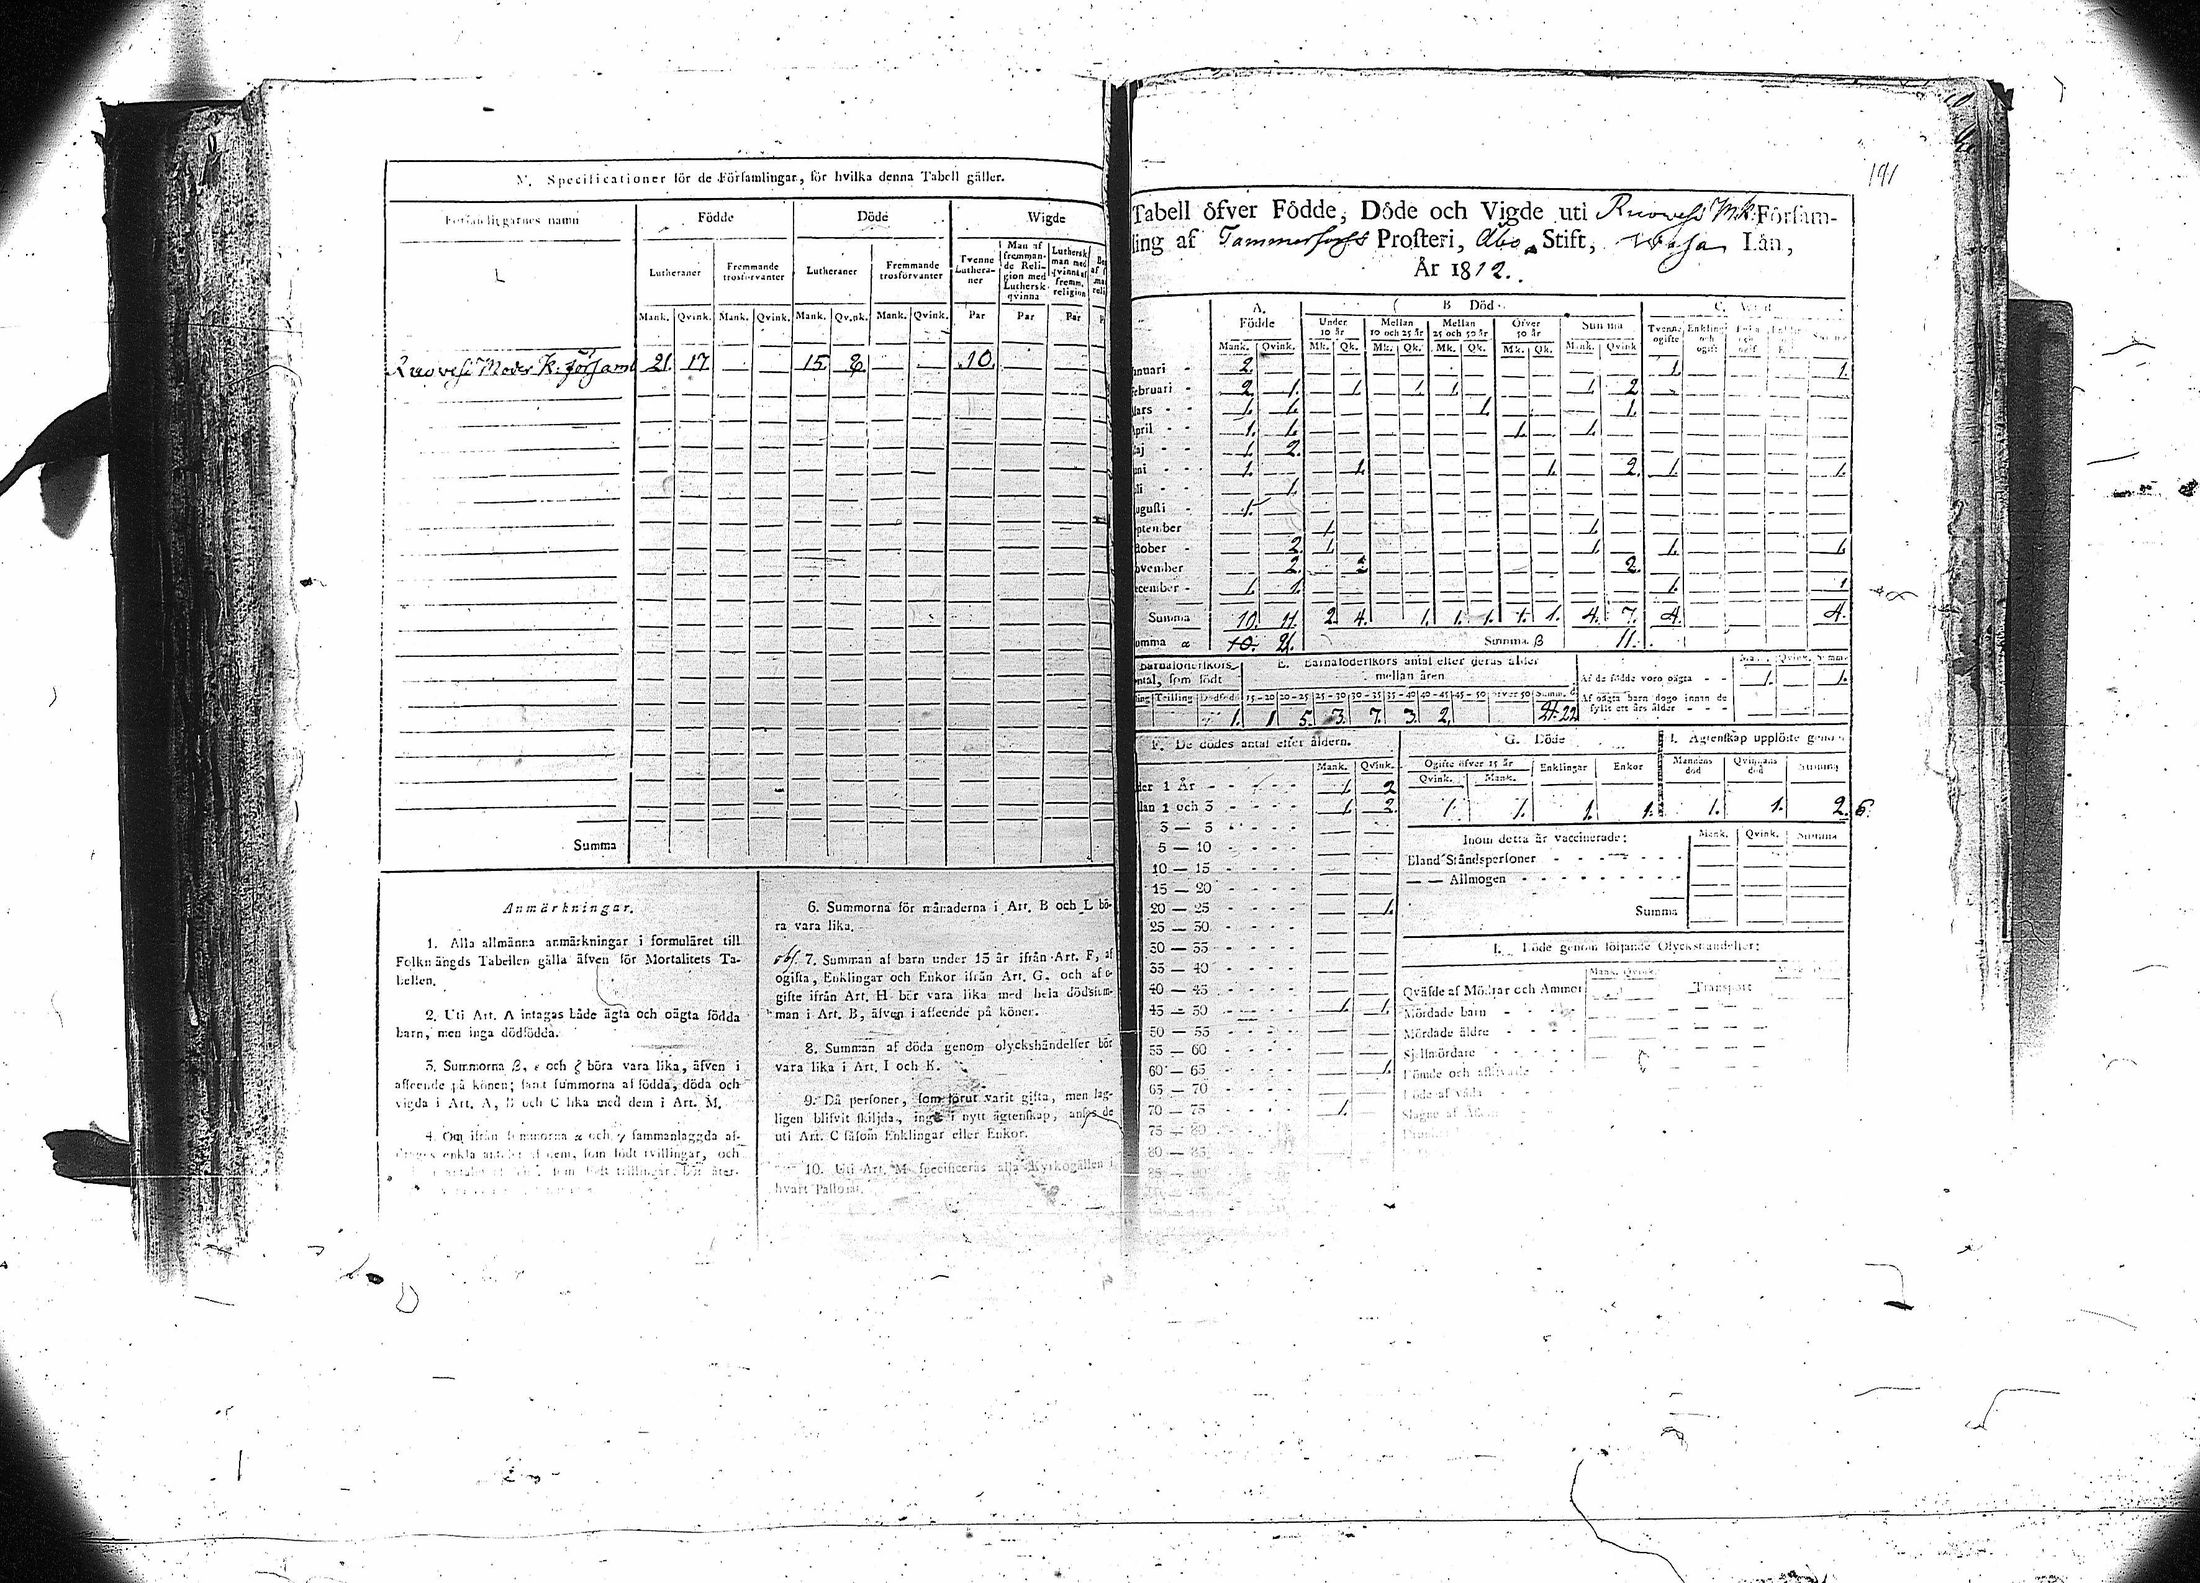 M. Specificationer för de Församlingar, för hvilka denna Tabell gäller.
Församlingarnes namn
Födde Döde Wigde
Lutheraner Fremmande trosförvanter Lutheraner Fremmande trosförvanter Tvenne Lutheraner Man af fremmande Religion med Luthersk qvinna Luthersk man med qvinna af fremm. religion
Mank. Qvink. Mank. Qvink. Mank. Qvink. Mank. Qvink. Par Par Par
Ruovesi Moder K. församl 21. 17. — — 15. 8. — — 10. — —
Summa
Anmärkningar.
1. Alla allmänna anmärkningar i formuläret till
Folkmängds Tabellen gälla äfven för Mortalitets Ta-
bellen.
2. Uti Art. A intagas både ägta och oägta födda
barn, men inga dödfödda.
3. Summorna β, ε och ζ böra vara lika, äfven i
afseende på könen; samt summorna af födda, döda och
vigda i Art. A, B och C lika med dem i Art. M.
4. Om ifrån summorna α och γ sammanlagda af-
drages enkla antalet af dem, som födt tvillingar, och
6. Summorna för månaderna i Art. B och L bö-
ra vara lika.
obs. 7. Summan af barn under 15 år ifrån Art. F, af
ogifta, Enklingar och Enkor ifrån Art. G. och af o-
gifte ifrån Art. H bör vara lika med hela dödssum-
man i Art. B, äfven i afseende på könen.
8. Summan af döda genom olyckshändelser bör
vara lika i Art. I och K.
9. Då personer, som förut varit gifta, men lag-
ligen blifvit skiljda, ingå i nytt ägtenskap, anses de
uti Art. C såsom Enklingar eller Enkor.
10. Uti Art. M specificeras alla Kyrkogällen i
hvart Pastorat.
191
Tabell öfver Födde, Döde och Vigde uti Ruovesi M.K. Försam-
ling af Tammerfors Prosteri, Åbo Stift, Wasa Län,
År 1812.
A. Födde B Död C.
Under 10 år Mellan 10 och 25 år Mellan 25 och 50 år Öfver 50 år Summa Tvenne ogifte Enkling och ogift
Mank. Qvink. Mk. Qk. Mk. Qk. Mk. Qk. Mk. Qk. Mank. Qvink
anuari 2. 1. 1.
ebruari 2. 1. 1. 1. 1. 1. 2. —
ars 1. 1. 1. 1.
pril 1. 1. 1. 1.
aj 1. 2.
uni 1. 1. 1. 2. 1. 1.
uli 1.
ugusti 1.
ptember 1. 1.
ctober 2. 1. 1. 1. 1.
ovember 2. 2. 2.
ecember 1. 1. 1. 1
Summa 10. 11. 2. 4. 1. 1. 1. 1. 1. 4. 7. 4. 4.
umma α 10. 21. Summa β 11.
Barnaföderskors antal, som födt
E. Barnaföderskors antal efter deras ålder
mellan åren
Trilling Dödfödd 15-20 20-25 25-30 30-35 35-40 40-45 45-50 öfver 50 Summ.
1. 1 5. 3. 7. 3. 2. 21. 22
Mank. Qvink. Summa
Af de födde voro oägta 1. 1.
Af oägta barn dogo innan de
fyllt ett års ålder
F. De dödes antal efter åldern.
Mank. Qvink.
der 1 År 1. 2
lan 1 och 3 1. 2.
3 — 5
5 — 10
10 — 15
15 — 20
20 — 25 — 1.
25 — 30
30 — 35
35 — 40
40 — 45
45 — 50 1. 1.
50 — 55
55 — 60
60 — 65 1.
65 — 70
70 — 75 1.
75 — 80
80 — 85
G. Döde
Ogifte öfver 15 år Enklingar Enkor
Qvink. Mank.
1. 1. 1. 1.
Ägtenskap upplöste genom
Mannens död Qvinnans död Summa
1. 1. 2. 6.
Inom detta år vaccinerade: Mank. Qvink. Summa
Bland Ståndspersoner
— — Allmogen
Summa
I. Döde genom följande Olyckshändelser:
Mank. Qvink.
Qväfde af Mödrar och Ammor Transport
Mördade barn
Mördade äldre
Sjelfmördare
Döde af våda